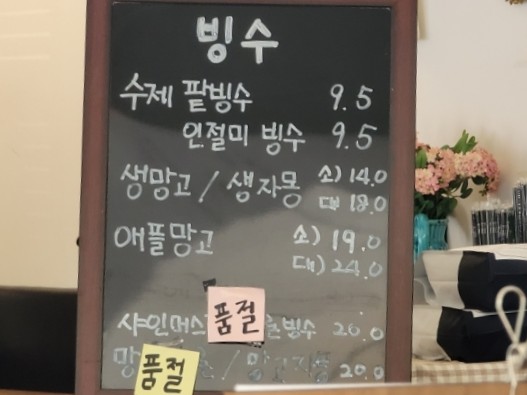 빙수
수제 팥빙수 9.5
인절미 빙수 9.5
생망고 / 생자몽 소) 14.0
대 18.0
애플망고 소) 19.0
대) 24.0
품절
빙수 20.0
품절 / 20.0